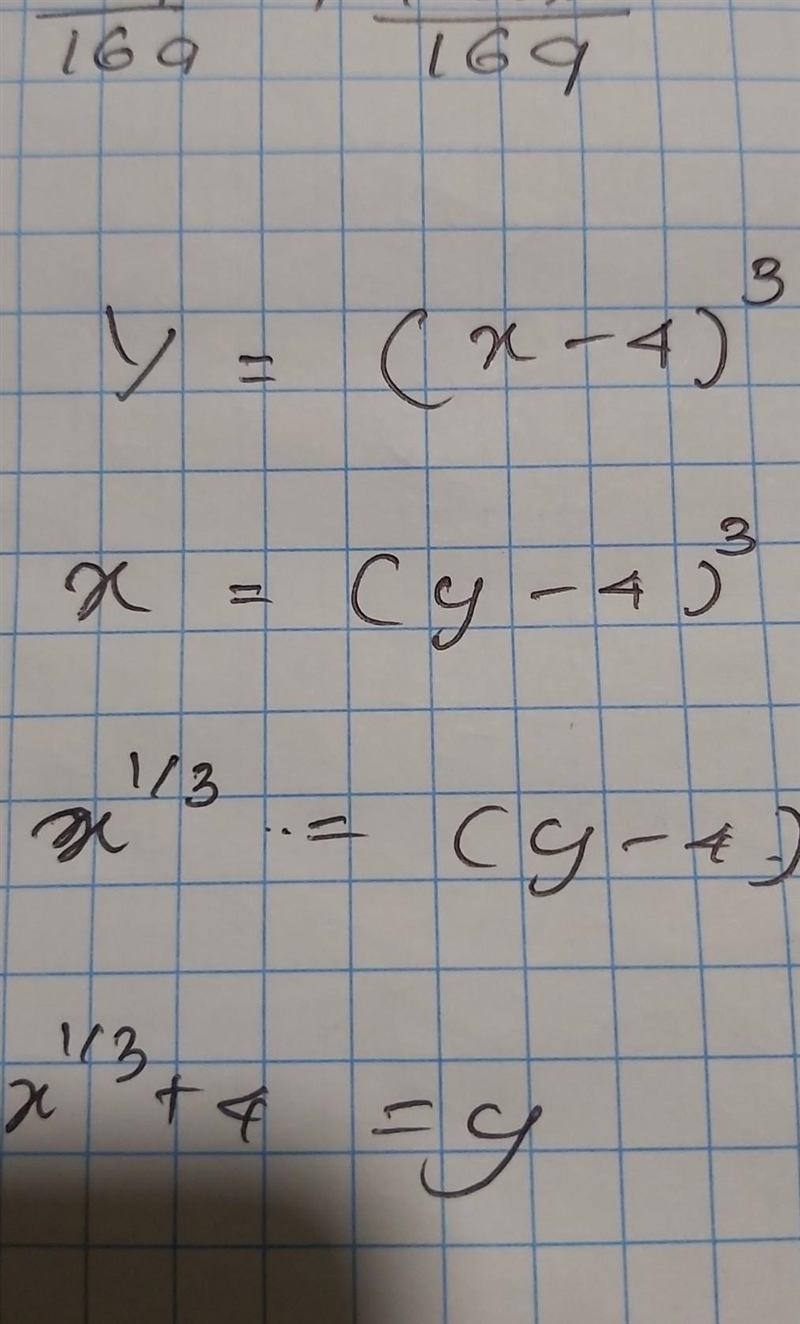 169 169
y = (x - 4)³
x = (y - 4)³
x^1/3 = (y - 4)
x^1/3 + 4 = y